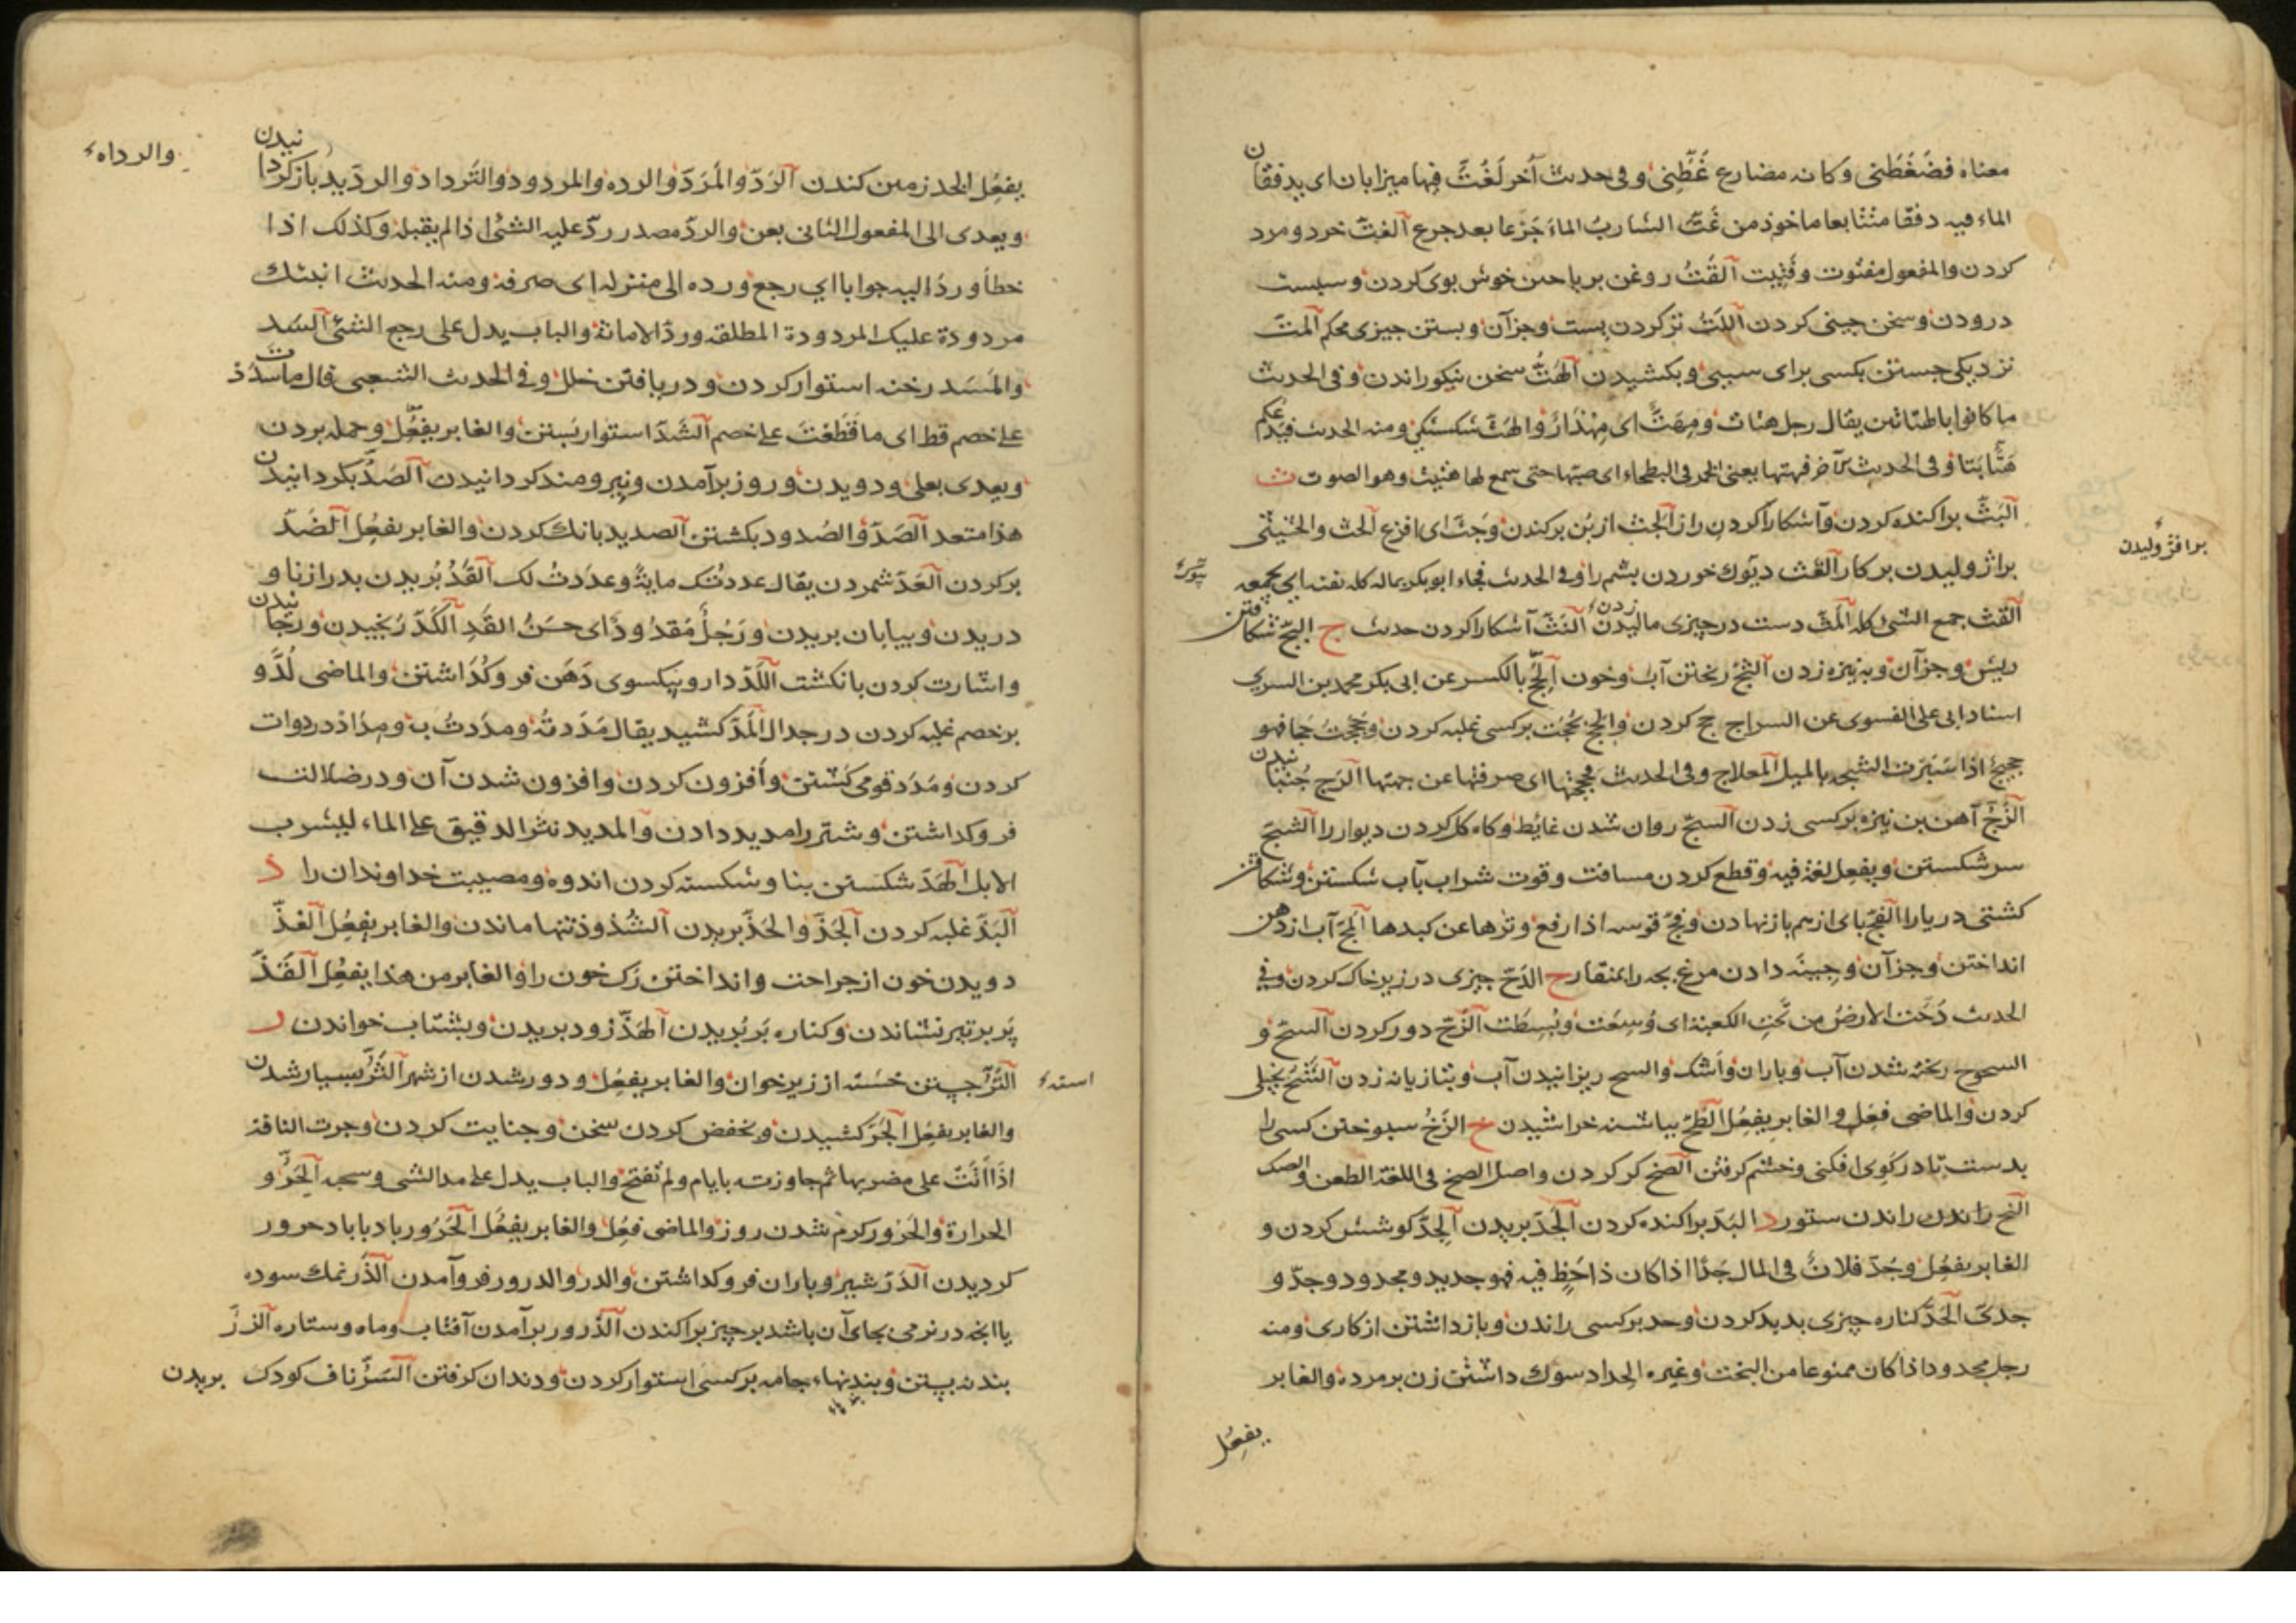 معناه فضغطنی وکانه مضارع غَطَّنِی وفی حدیث آخر لَغُتَّ فیها میزابان ای یدفقان
الماء فیه دفقا متتابعا ماخوذ من غَتَّ الشاربُ الماءَ جَرعا بعد جرع آلفتّ خرد ومرد
کردن والمفعول مفتوت وفتیت آلقَتُّ روغن بریاحین خوش بوی کردن وسپست
درودن وسخن چینی کردن آللَتُّ تر کردن پست وجزآن وبستن چیزی محکم آلمتّ
نزدیکی جستن بکسی برای سببی وبکشیدن آلهَتُّ سخن نیکو راندن وفی الحدیث
ما کانوا بالهتاتین یقال رجل هتات ومِهَتٌّ ای مِهْذَارٌ والهَتّ شکستگی ومنه الحدیث فیدعکم
هَتًّا بَتًّا وفی الحدیث الآخر فهتها یعنی الخمر فی البطحاء ای صبّها حتی سمع لها هتیت وهو الصوت ث
آلبَثّ پراکنده کردن وآشکارا کردن راز آلجَثّ از بُن برکندن وجُثَّ ای افزع آلحث والحثیثی
برافژولیدن
براژولیدن بر کار آلعَثّ دیوک خوردن پشم را وفی الحدیث فجاء ابوبکر بماله کله یقثه ای یجمعه
آلقَثّ جمع الشیٔ کله آلمَثّ دست در چیزی مالیدن آلنَثّ آشکارا کردن حدیث ج البَجّ شکافتن
ریش وجزآن وبنیزه زدن آلثَجّ ریختن آب وخون آلحِجّ بالکسر عن ابی بکر محمد بن السری
اسناد ابی علی الفسوی عن السراج حج کردن والحَجّ بحُجّت بر کسی غلبه کردن وحَجَجْتُ حَجًّا فهو
حجیج اذا سَبَرتَ الشجّه بالمیل المعلاج وفی الحدیث فحججتها ای صرفتها عن جهتها آلرّجّ جُنبانیدن
آلزَجّ آهن بن نیزه بر کسی زدن آلسجّ روان شدن غایط وکاه کل کردن دیوار را آلشجّ
سر شکستن ویفعِل لغة فیه وقطع کردن مسافت وقوت شراب بآب شکستن وشکافتن
کشتی دریا را آلفجّ پای از هم باز نهادن وفجّ قوسه اذا رفع وترها عن کبدها آلمجّ آب از دهن
انداختن وجزآن وجینه دادن مرغ بچه را بمنقار ح الدَحّ چیزی در زیر خاک کردن وفی
الحدیث دُحَّت الارضُ من تَحتِ الکعبة ای وُسِعَت وبُسِطَت آلزَحّ دور کردن آلسحّ و
السحوح ریخته شدن آب وباران واشک والسح ریزانیدن آب وبتازیانه زدن آلشُحّ بخیلی
کردن والماضی فعِل والغابر یفعُل آلطَحّ بپاشنه خراشیدن خ الزَخّ سپوختن کسی را
بدست تا در گوی افکنی وخشم گرفتن آلصخّ کر کردن واصل الصخ فی اللغة الطعن والصک
آلنخ راندن راندن ستور د البَدّ پراکنده کردن آلجَدّ بریدن آلجِدّ کوشش کردن و
الغابر یفعُل وجُدَّ فلانٌ فی المال جَدًّا اذا کان ذا حَظٍّ فیه فهو جدید ومجدود وجدّ و
جدیّ آلحَدّ کناره چیزی پدید کردن وحد بر کسی راندن وباز داشتن از کاری ومنه
رجل محدود اذا کان ممنوعا من البخت وغیره الحداد سوک داشتن زن بر مرده والغابر
یفعِل
والرداه
یفعُل الخدّ زمین کندن آلرَدّ والمَرَدّ والرده والمردود والتَرداد والردّید باز گردانیدن
ویعدی الی المفعول الثانی بعن والردّ مصدر ردّ علیه الشیٔ اذا لم یقبله وکذلک اذا
خطأ وردّ الیه جوابا ای رجع ورده الی منزله ای صرفه ومنه الحدیث ابنتک
مردودة علیک المردودة المطلقه وردّ الامانة والباب یدل علی رجع الشیٔ آلسَد
والمَسَد رخنه استوار کردن ودر یافتن خلل وفی الحدیث الشعبی قال ما سَدَدت
علی خصم قط ای ما قَطَعْتَ علی خصم آلشَدّ استوار بستن والغابر یفعُِل وحمله بردن
ویعدی بعلی ودویدن وروز برآمدن ونیرومند کردانیدن آلصَدّ بگردانیدن
هذا متعد آلصَدّ والصُدود بگشتن آلصدید بانک کردن والغابر یفعِل آلضَدّ
پر کردن آلعَدّ شمردن یقال عددتُک مایةً وعدَدتُ لک آلقَدّ بُریدن بدرازنا و
دریدن وبیابان بریدن ورَجُلٌ مَقدُودٌ ای حسَنُ القَدِ آلکَدّ رنجیدن ورنجانیدن
واشارت کردن بانکشت آللَدّ دارو بیکسوی دَهَن فرو کُذاشتن والماضی لُدَّ و
بر خصم غلبه کردن در جدال آلمَدّ کشیدن یقال مَدَدتهُ ومدَدتُ به ومِداد در دوات
کردن ومَدَد قومی کشتن وافزون کردن وافزون شدن آن ودر ضلالت
فرو کداشتن وشتر را مدید دادن والمدید نثر الدقیق علی الماء لیشرب
الابل آلهَدّ شکستن بنا وشکسته کردن اندوه ومصیبت خداوندان را ذ
آلبَذّ غلبه کردن آلجَذّ والحَذّ بریدن آلشُذوذ تنها ماندن والغابر یفعُِل آلغذّ
دویدن خون از جراحت وانداختن رک خون را والغابر من هذا یفعِل آلقَذّ
پَر بر تیر نشاندن وکناره پَر بُریدن آلهَذّ زود بریدن وبشتاب خواندن ر
آلتُرّ جستن خسته از زیر خوان والغابر یفعُِل ودور شدن از شهر آلثَرّ بسیار شدن
استه
والغابر یفعِل الجَرّ کشیدن وبخفض کردن سخن وجنایت کردن وجرت الناقة
اذا اَتَت علی مضربها ثم جاوزته بایام ولم تُفتَح والباب یدل علی مد الشی وسحبه آلحَرّ و
الحرارة والحَرور کرم شدن روز والماضی فعِل والغابر یفعُل الحَرُور باد با باد حرور
کردیدن آلدَرّ شیر وباران فرو کداشتن والدر والدرور فرو آمدن آلذَرّ نمک سوده
یا انچه در نرمی بجای آن باشد بر چیز پراکندن آلذُرور برآمدن آفتاب وماه وستاره آلزرّ
بندنه بستن وبندنهاء جامه بر کسی استوار کردن ودندان گرفتن آلسَرّ ناف کودک بریدن